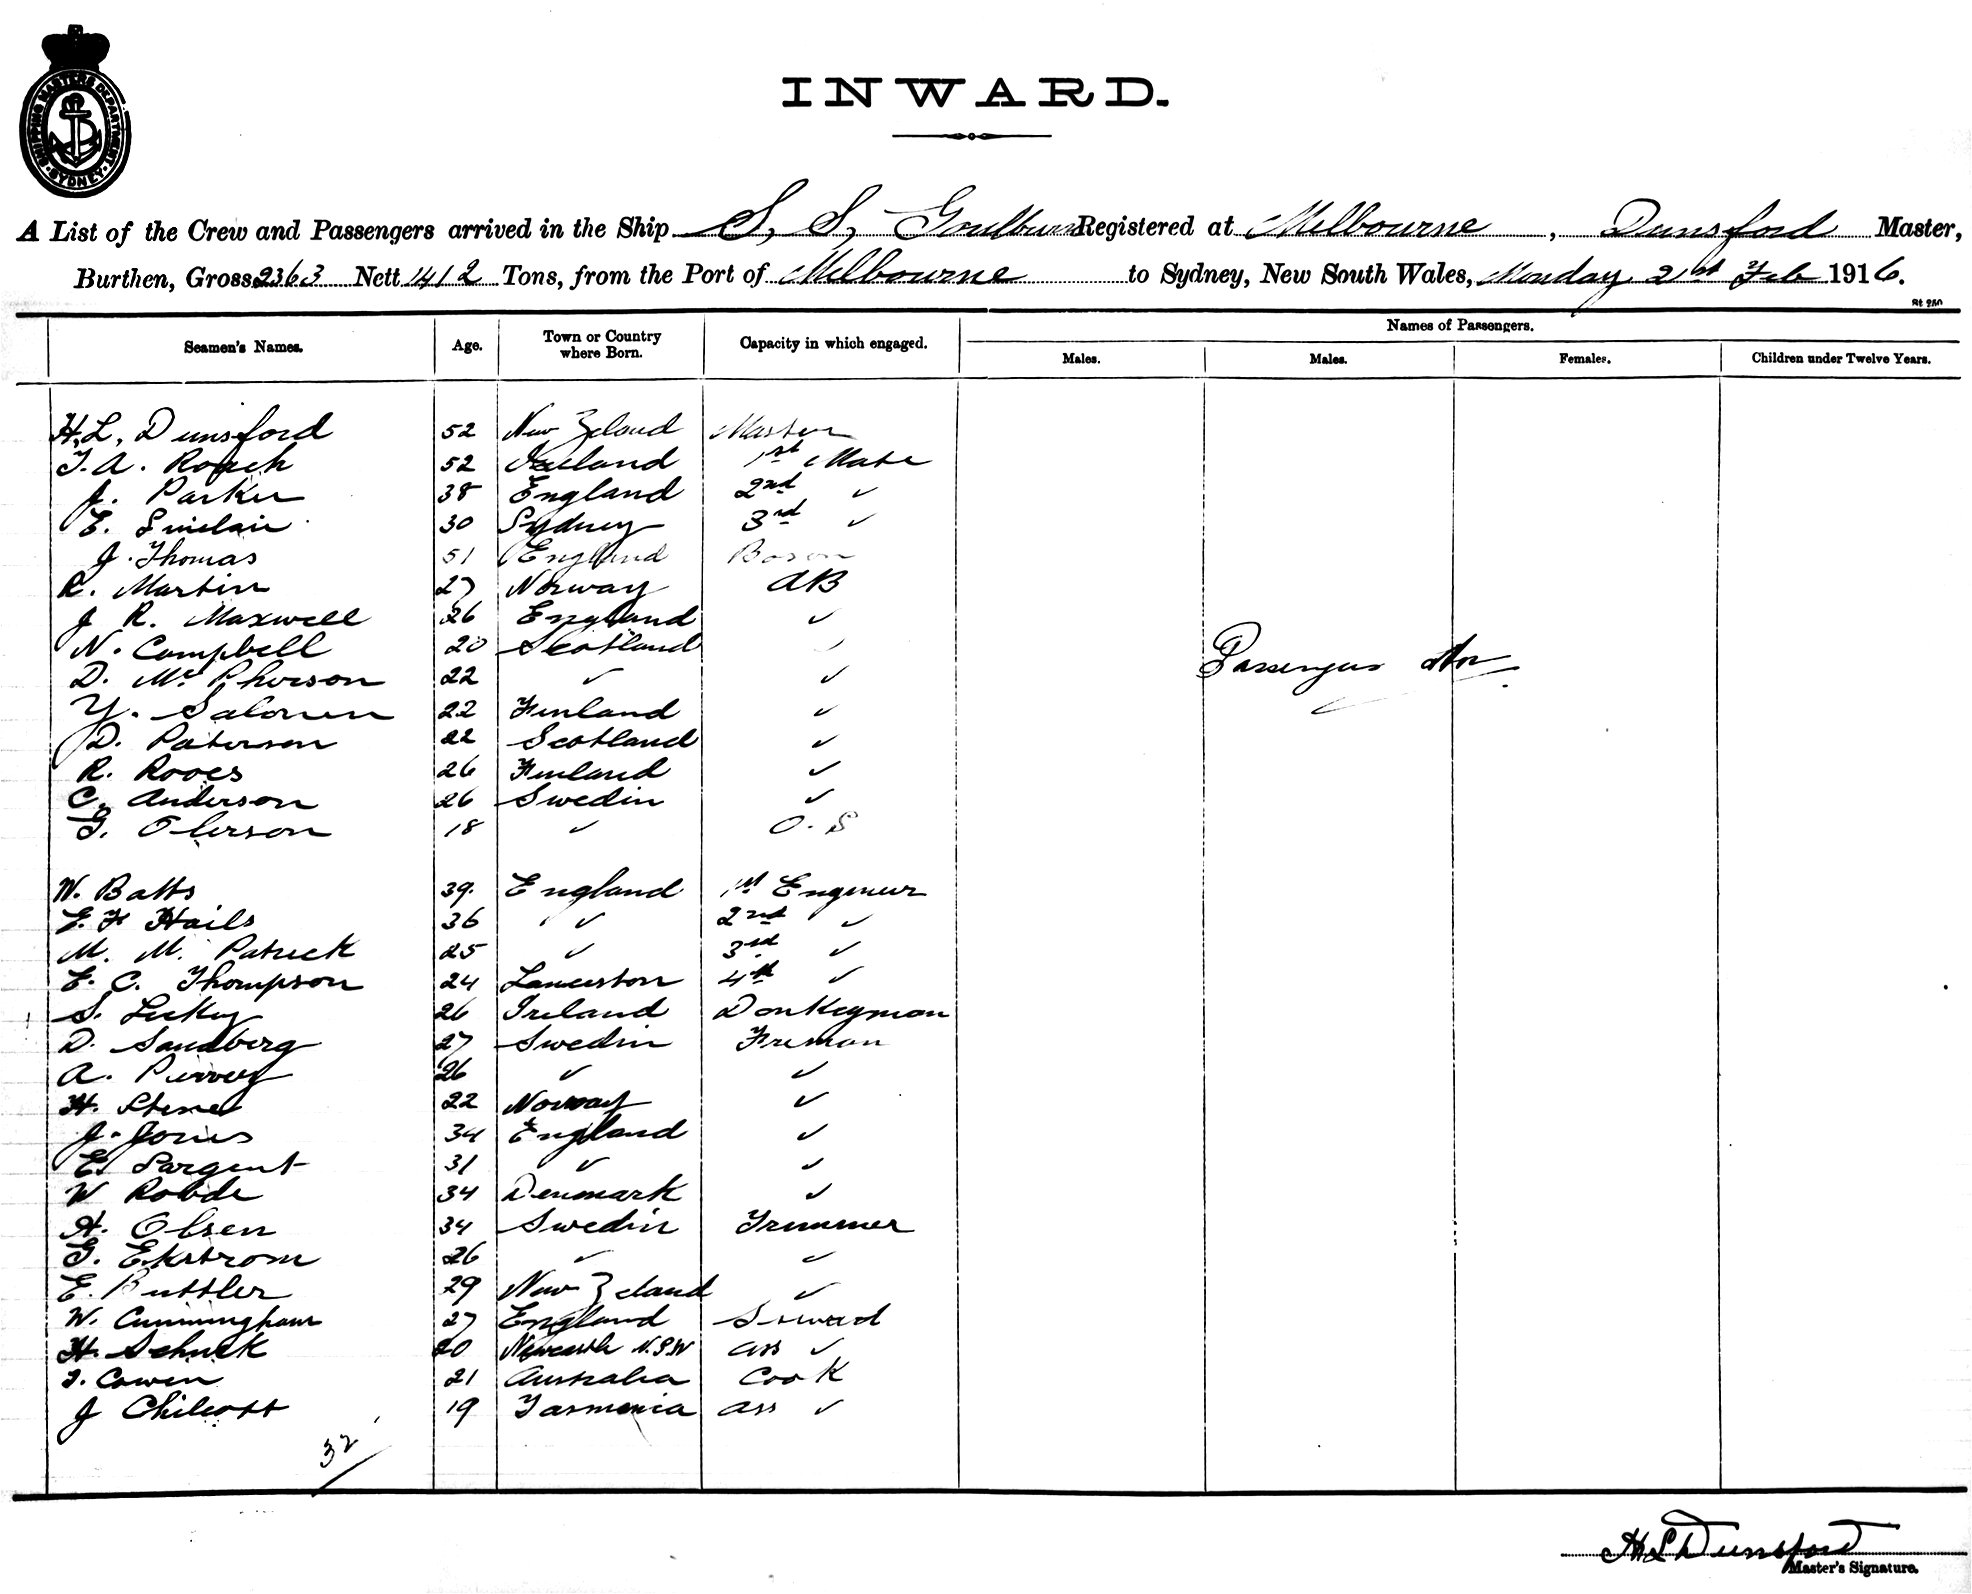 INWARD.
SHIPPING MASTERS DEPARTMENT SYDNEY
A List of the Crew and Passengers arrived in the Ship S, S, Goulburn Registered at Melbourne, Dunsford Master,
Burthen, Gross 2363 Nett 1412 Tons, from the Port of Melbourne to Sydney, New South Wales, Monday 21st Feb 1916.
St 250
Seamen's Names. Age. Town or Country where Born. Capacity in which engaged. Names of Passengers.
Males. Males. Females. Children under Twelve Years.
H. L. Dunsford 52 New Zeland Master
T. A. Roach 52 Ireland 1st Mate
J. Parker 38 England 2nd ✓
E. Sinclair 30 Sydney 3rd ✓
J. Thomas 51 England Boson
R. Martin 27 Norway AB
J R. Maxwell 26 England ✓
N. Campbell 20 Scotland ✓
D. Mc Pherson 22 ✓ ✓
Passengers
Y. Salonen 22 Finland ✓
D. Paterson 22 Scotland ✓
R. Rooes 26 Finland ✓
C. Anderson 26 Swedin ✓
G. Olerson 18 ✓ O. S
W. Batts 39. England 1st Engineer
E. F Hails 36 ✓ 2nd ✓
M. M. Patrick 25 ✓ 3rd ✓
E. C. Thompson 24 Lanceston 4th ✓
S. Leckey 26 Ireland Donkeyman
D. Sandberg 27 Swedin Freman
A. 26 ✓ ✓
H. Stene 22 Norway ✓
J. Jones 34 England ✓
E. Sargent 31 ✓ ✓
W Robde 34 Denmark ✓
A. Olsen 34 Swedin Trimmer
G. Ekstrom 26 ✓ ✓
E. Buttler 29 New Zeland ✓
W. Cunningham 27 England Steward
H. Schuck 20 Newcastle N.S.W Ass ✓
T. Cowen 21 Australia Cook
J Chilcott 19 Tasmania Ass ✓
32
H L Dunsford
Master's Signature.